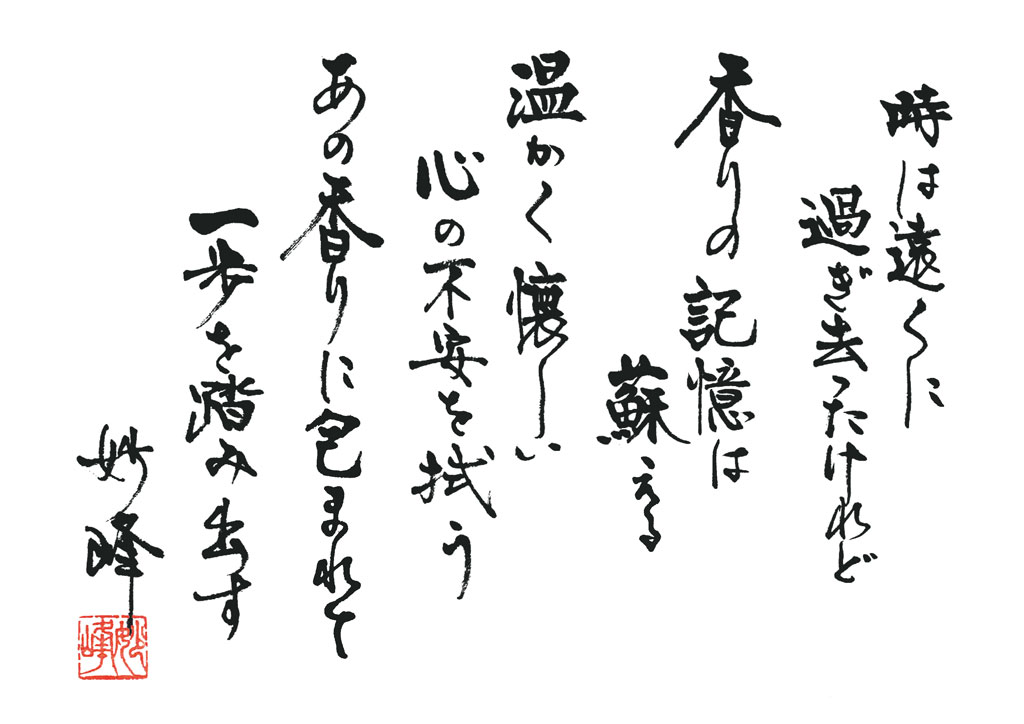 時は遠くに
過ぎ去ったけれど
香りの記憶は
蘇える
温かく懐しい
心の不安を拭う
あの香りに包まれて
一歩を踏み出す
妙峰
妙峰